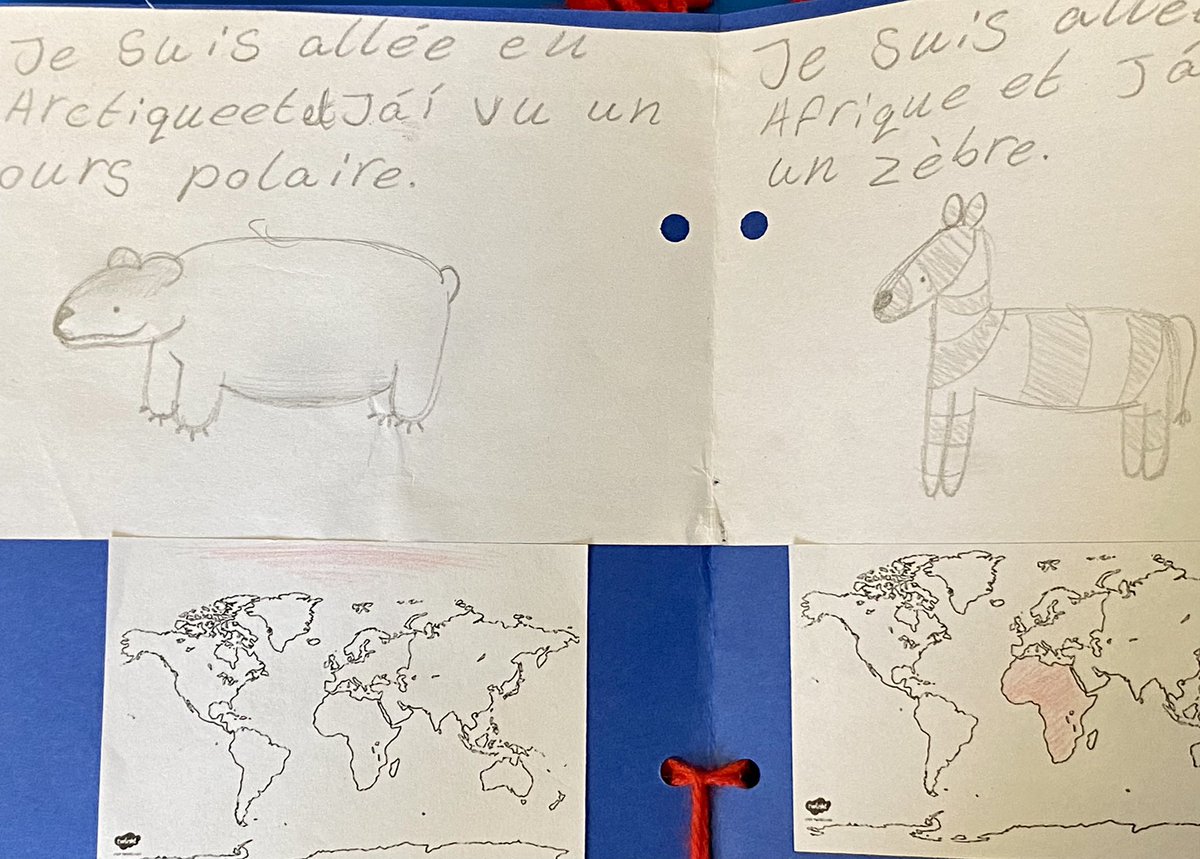 Je suis allée en
Arctique et et Já́i vu un
ours polaire.
Je suis allé
Afrique et Já
un zèbre.
twinkl